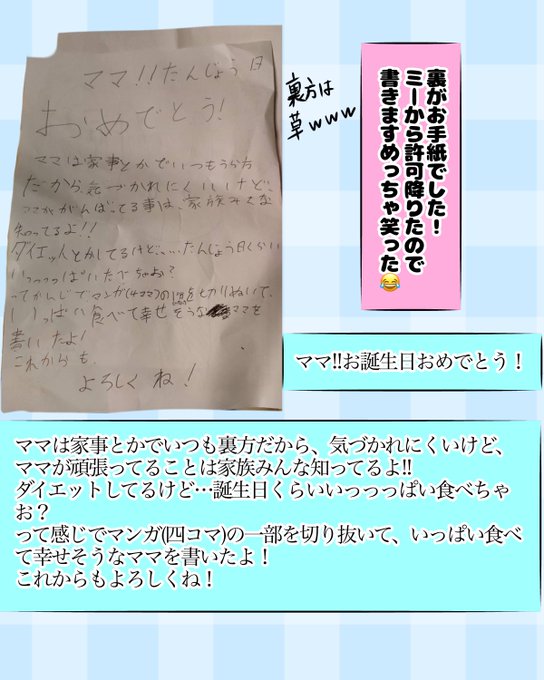 ママ!!たんじょう日
おめでとう!
ママは家事とかでいつもうら方
だから、気づかれにくいけど、
ママががんばってる事は、家族みんな
知ってるよ!!
ダイエットとかしてるけど、、、、たんじょう日くらい
いっっっっぱいたべちゃお?
ってかんじでマンガ(4コマ)の1部を切りぬいて、
いっぱい食べて幸せそうなママを
書いたよ!
これからも、
よろしくね!
裏方は
草www
裏がお手紙でした!
ミーから許可降りたので
書きますめっちゃ笑った😂
ママ!!お誕生日おめでとう!
ママは家事とかでいつも裏方だから、気づかれにくいけど、
ママが頑張ってることは家族みんな知ってるよ!!
ダイエットしてるけど…誕生日くらいいっっっぱい食べちゃ
お?
って感じでマンガ(四コマ)の一部を切り抜いて、いっぱい食べ
て幸せそうなママを書いたよ!
これからもよろしくね!